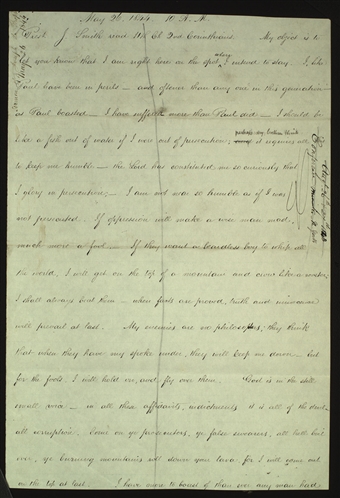 May 26, 1844. 10 A. M.
Prest. J Smith read 11th Ch 2nd Corinthians. My object is to
let you know that I am right here on the spot where I intend to stay. I, like
Paul have been in perils — and oftener than any one in this generation —
as Paul boasted — I have suffered more than Paul did — I should be
like a fish out of water if I were out of persecutions; perhaps my brethren think it requires all this
to keep me humble — the Lord has constituted me so curiously that
I glory in persecution; — I am not near so humble as if I was
not persecuted. If oppression will make a wise man mad,
much more a fool — If they want a beardless boy to whip all
the world, I will get on the top of a mountain and crow like a rooster,
I shall always beat them — when facts are proved, truth and innocence
will prevail at last. My enemies are no philosophers; they think
that when they have my spoke under, they will keep me down — but
for the fools, I will hold on, and fly over them. God is in the still
small voice — in all these affidavits, indictments it is all of the devil —
all corruption. Come on ye prosecutors, ye false swearers, all hell, boil
over, ye burning mountains roll down your lava for I will come out
on the top at last. I have more to boast of than ever any man had,